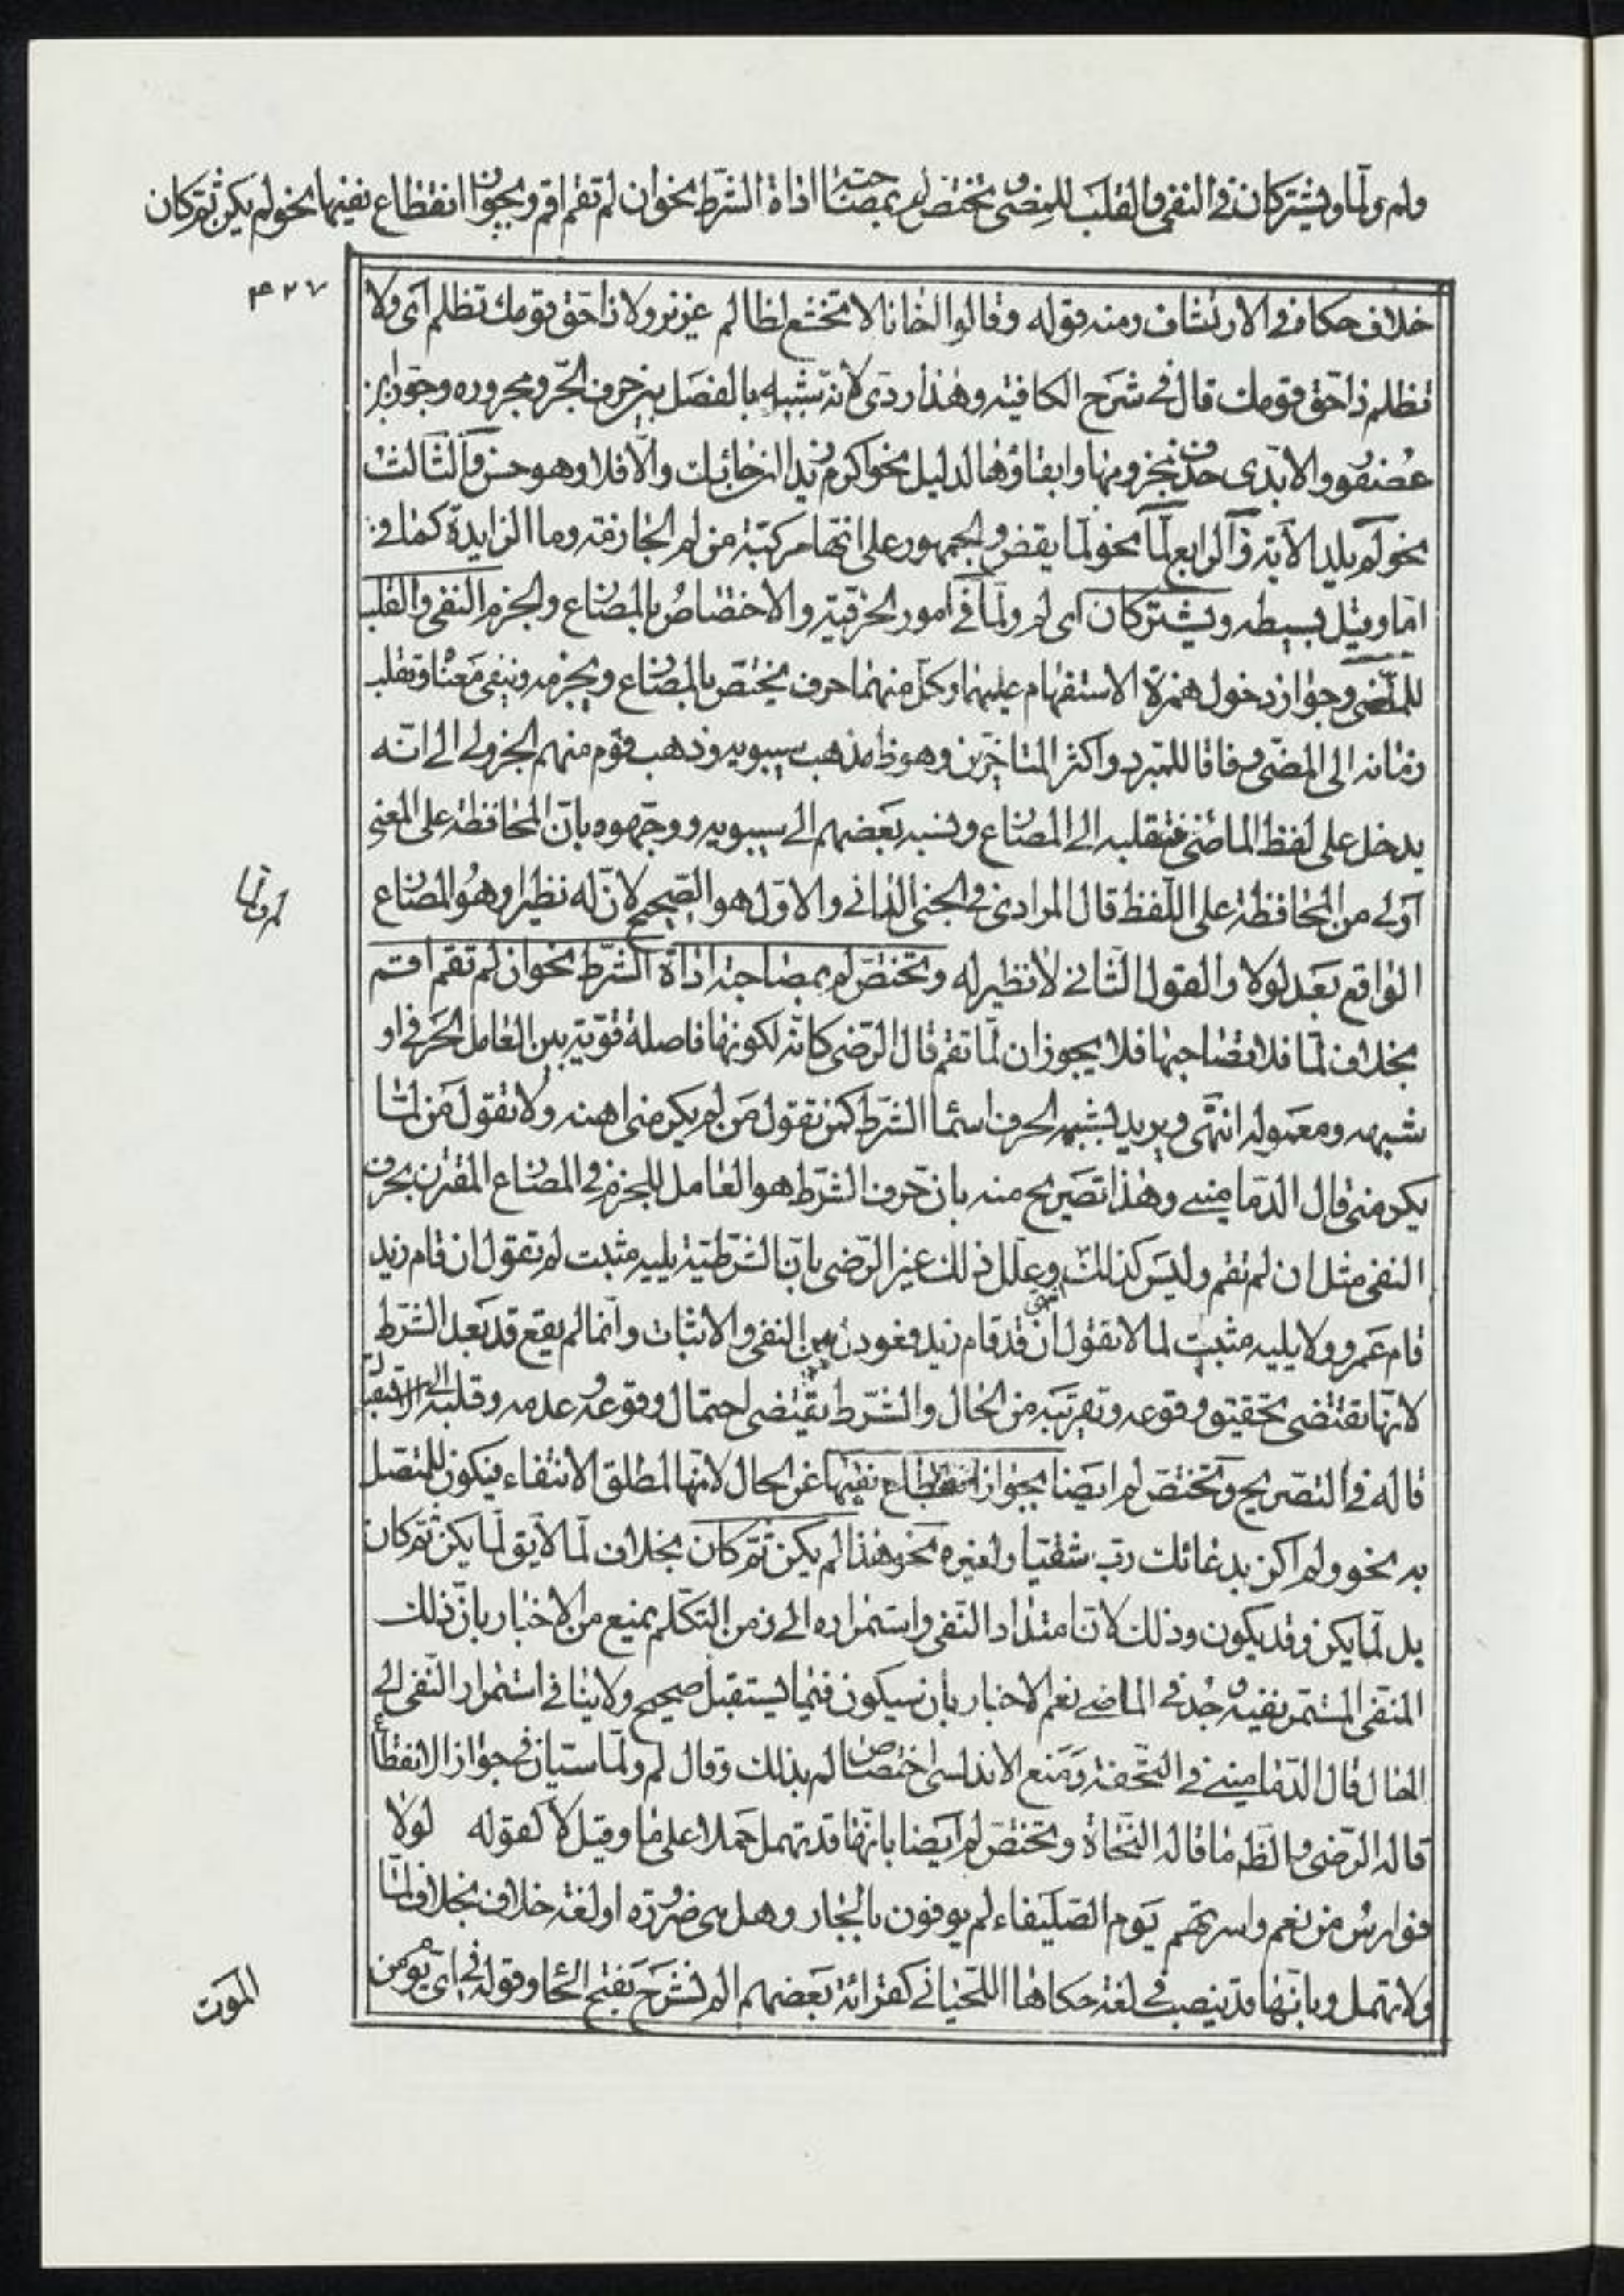 ولم ولمّا ويشتركان في النفي والقلب للمضيّ وتختصّ لم بمصاحبة اداة الشرط نحو ان لم تقم اقم وبجواز انقطاع نفيها نحو لم يكن ثم كان
٤٢٧
خلاف حكاه في الارتشاف ومنه قوله وقالوا اخانا لا تخشع لظالم عزيز ولا ذا حقّ قومك تظلم اى ولا
تظلم ذا حقّ قومك قال في شرح الكافية وهذا ردى لانه شبيه بالفصل بين حرف الجرّ ومجروره وجوّز ابن
عصفور والابّدى حذف مجزومها وابقاؤها لدليل نحو اكرم زيدا ان جائك والّا فلا وهو حسن والثالث
نحو لم يلد الآية والرابع لمّا نحو لما يقض والجمهور على انّها مركّبة من لم الجازمة وما الزايدة كما في
امّا وقيل بسيطه ويشتركان اى لم ولمّا في امور الحرفيّة والاختصاص بالمضارع والجزم النفي والقلب
للمضيّ وجواز دخول همزة الاستفهام عليهما وكلّ منهما حرف يختصّ بالمضارع ويجزمه وينفى معناه ويقلب
زمانه الى المضيّ وفاقا للمبرد واكثر المتاخّرين وهو ظ مذهب سيبويه وذهب قوم منهم الجزولى الى انّه
يدخل على لفظ الماضى فيقلبه الى المضارع ونسبه بعضهم الى سيبويه ووجّهوه بانّ المحافظة على المعنى
اولى من المحافظة على اللّفظ قال المرادى في الجنى الدانى والاوّل هو الصّحيح لانّ له نظيرا وهو المضارع
لم ولمّا
الواقع بعد لو والقول الثانى لا نظير له وتختصّ لم بمصاحبة اداة الشرط نحو ان لم تقم اقم
بخلاف لمّا فلا تصاحبها فلا يجوز ان لمّا تقم قال الرّضى كانّه لكونها فاصلة قويّة بين العامل الحرفى او
شبهه ومعموله انتهى ويريد بشبه الحرف اسما الشرط كمن تقول من لم يكرمنى اهنه ولا تقول من لمّا
يكرمنى قال الدّمامينى وهذا تصريح منه بانّ حرف الشرط هو العامل للجزم في المضارع المقترن بحرف
النفى مثل ان لم تقم وليس كذلك وعلّل ذلك غير الرّضى بانّ الشرطيّة يليه مثبت لم تقول ان قام زيد
قام عمرو ولا يليه مثبت لما لا تقول ان قد قام زيد فعودل بين النفى والاثبات وانّما لم يقع قد بعد الشرط
لانّها تقتضى تحقيق وقوعه وتقريبه من الحال والشّرط يقتضى احتمال وقوعه وعدمه وقلبه الى الاستقبال
قاله في التصريح وتختصّ لم ايضا بجواز انقطاع نفيها عن الحال لانّها لمطلق الانتفاء فيكون للمتّصل
به نحو ولم اكن بدعائك ربّ شقيّا ولغيره نحو هذا لم يكن ثم كان بخلاف لمّا لا يق لمّا يكن ثم كان
بل لمّا يكن وقد يكون وذلك لانّ امتداد النّفى واستمراره الى زمن التكلّم يمنع من الاخبار بانّ ذلك
المنفى المستمرّ نفيه وجد في الماضى نعم الاخبار بان سيكون فيما يستقبل صحيح ولا ينافى استمرار النّفى الى
الحال قال الدّمامينى في التّحفة ومنع الاندلسى اختصاص لم بذلك وقال لم ولمّا سيّان في جواز الانقطاع
قاله الرّضى والظّ ما قاله النّحاة وتختصّ لم ايضا بانّها قد تهمل حملا على ما وقيل لا كقوله لولا
فوارس من نعم واسرتهم يوم الصّليفاء لم يوفون بالجار وهل هى ضرورة او لغة خلاف بخلاف لمّا
ولا تهمل وبانّها قد ينصب في لغة حكاها اللّحيانى كقرائة بعضهم الم نشرح بفتح الحا وقوله في اىّ يومىّ من
الموت